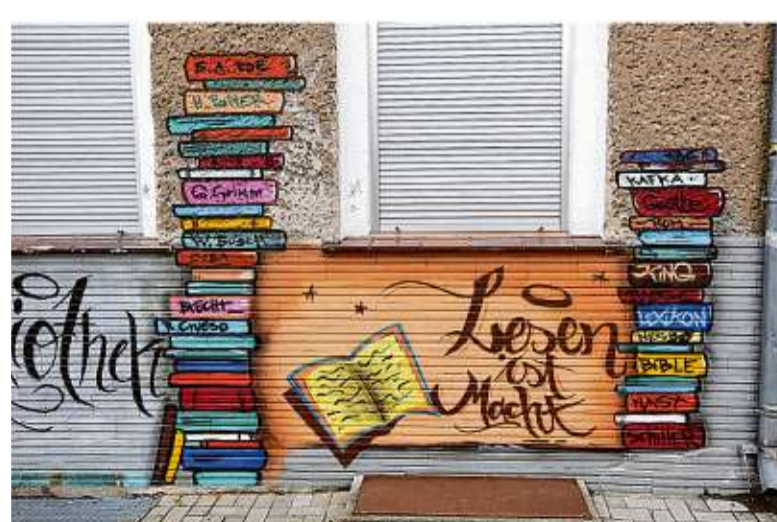 E. A. POE
G. Grimm
W. BUSCH
BRECHT
iothek
Lesen
ist
Macht
KAFKA
Goethe
KING
LEXIKON
NESBØ
BIBLE
KUNST
SCHILLER